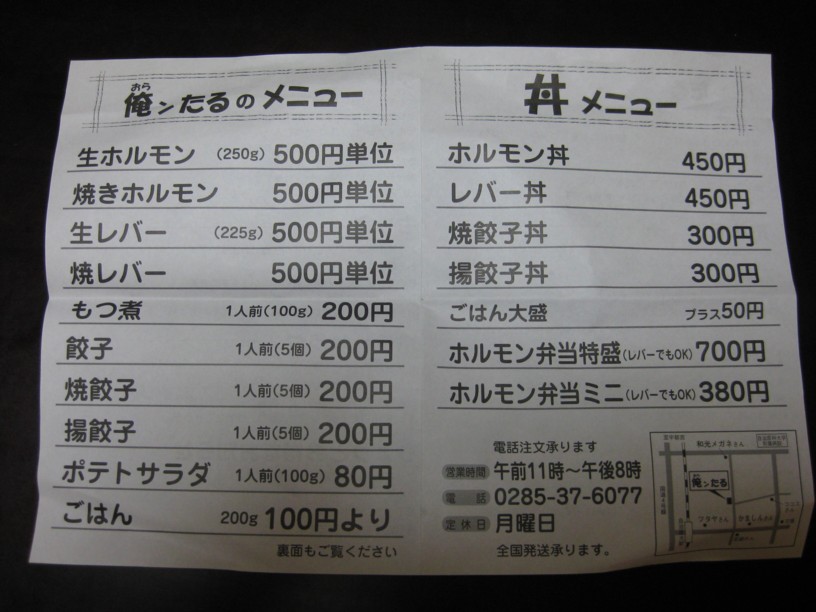 おら
俺ンたるのメニュー
生ホルモン (250g) 500円単位
焼きホルモン 500円単位
生レバー (225g) 500円単位
焼レバー 500円単位
もつ煮 1人前(100g) 200円
餃子 1人前(5個) 200円
焼餃子 1人前(5個) 200円
揚餃子 1人前(5個) 200円
ポテトサラダ 1人前(100g) 80円
ごはん 200g 100円より
裏面もご覧ください
丼メニュー
ホルモン丼 450円
レバー丼 450円
焼餃子丼 300円
揚餃子丼 300円
ごはん大盛 プラス50円
ホルモン弁当特盛(レバーでもOK) 700円
ホルモン弁当ミニ(レバーでもOK) 380円
電話注文承ります
営業時間 午前11時～午後8時
電話 0285-37-6077
定休日 月曜日
全国発送承ります。
和光メガネさん
俺ンたる
ツタヤさん
かましんさん